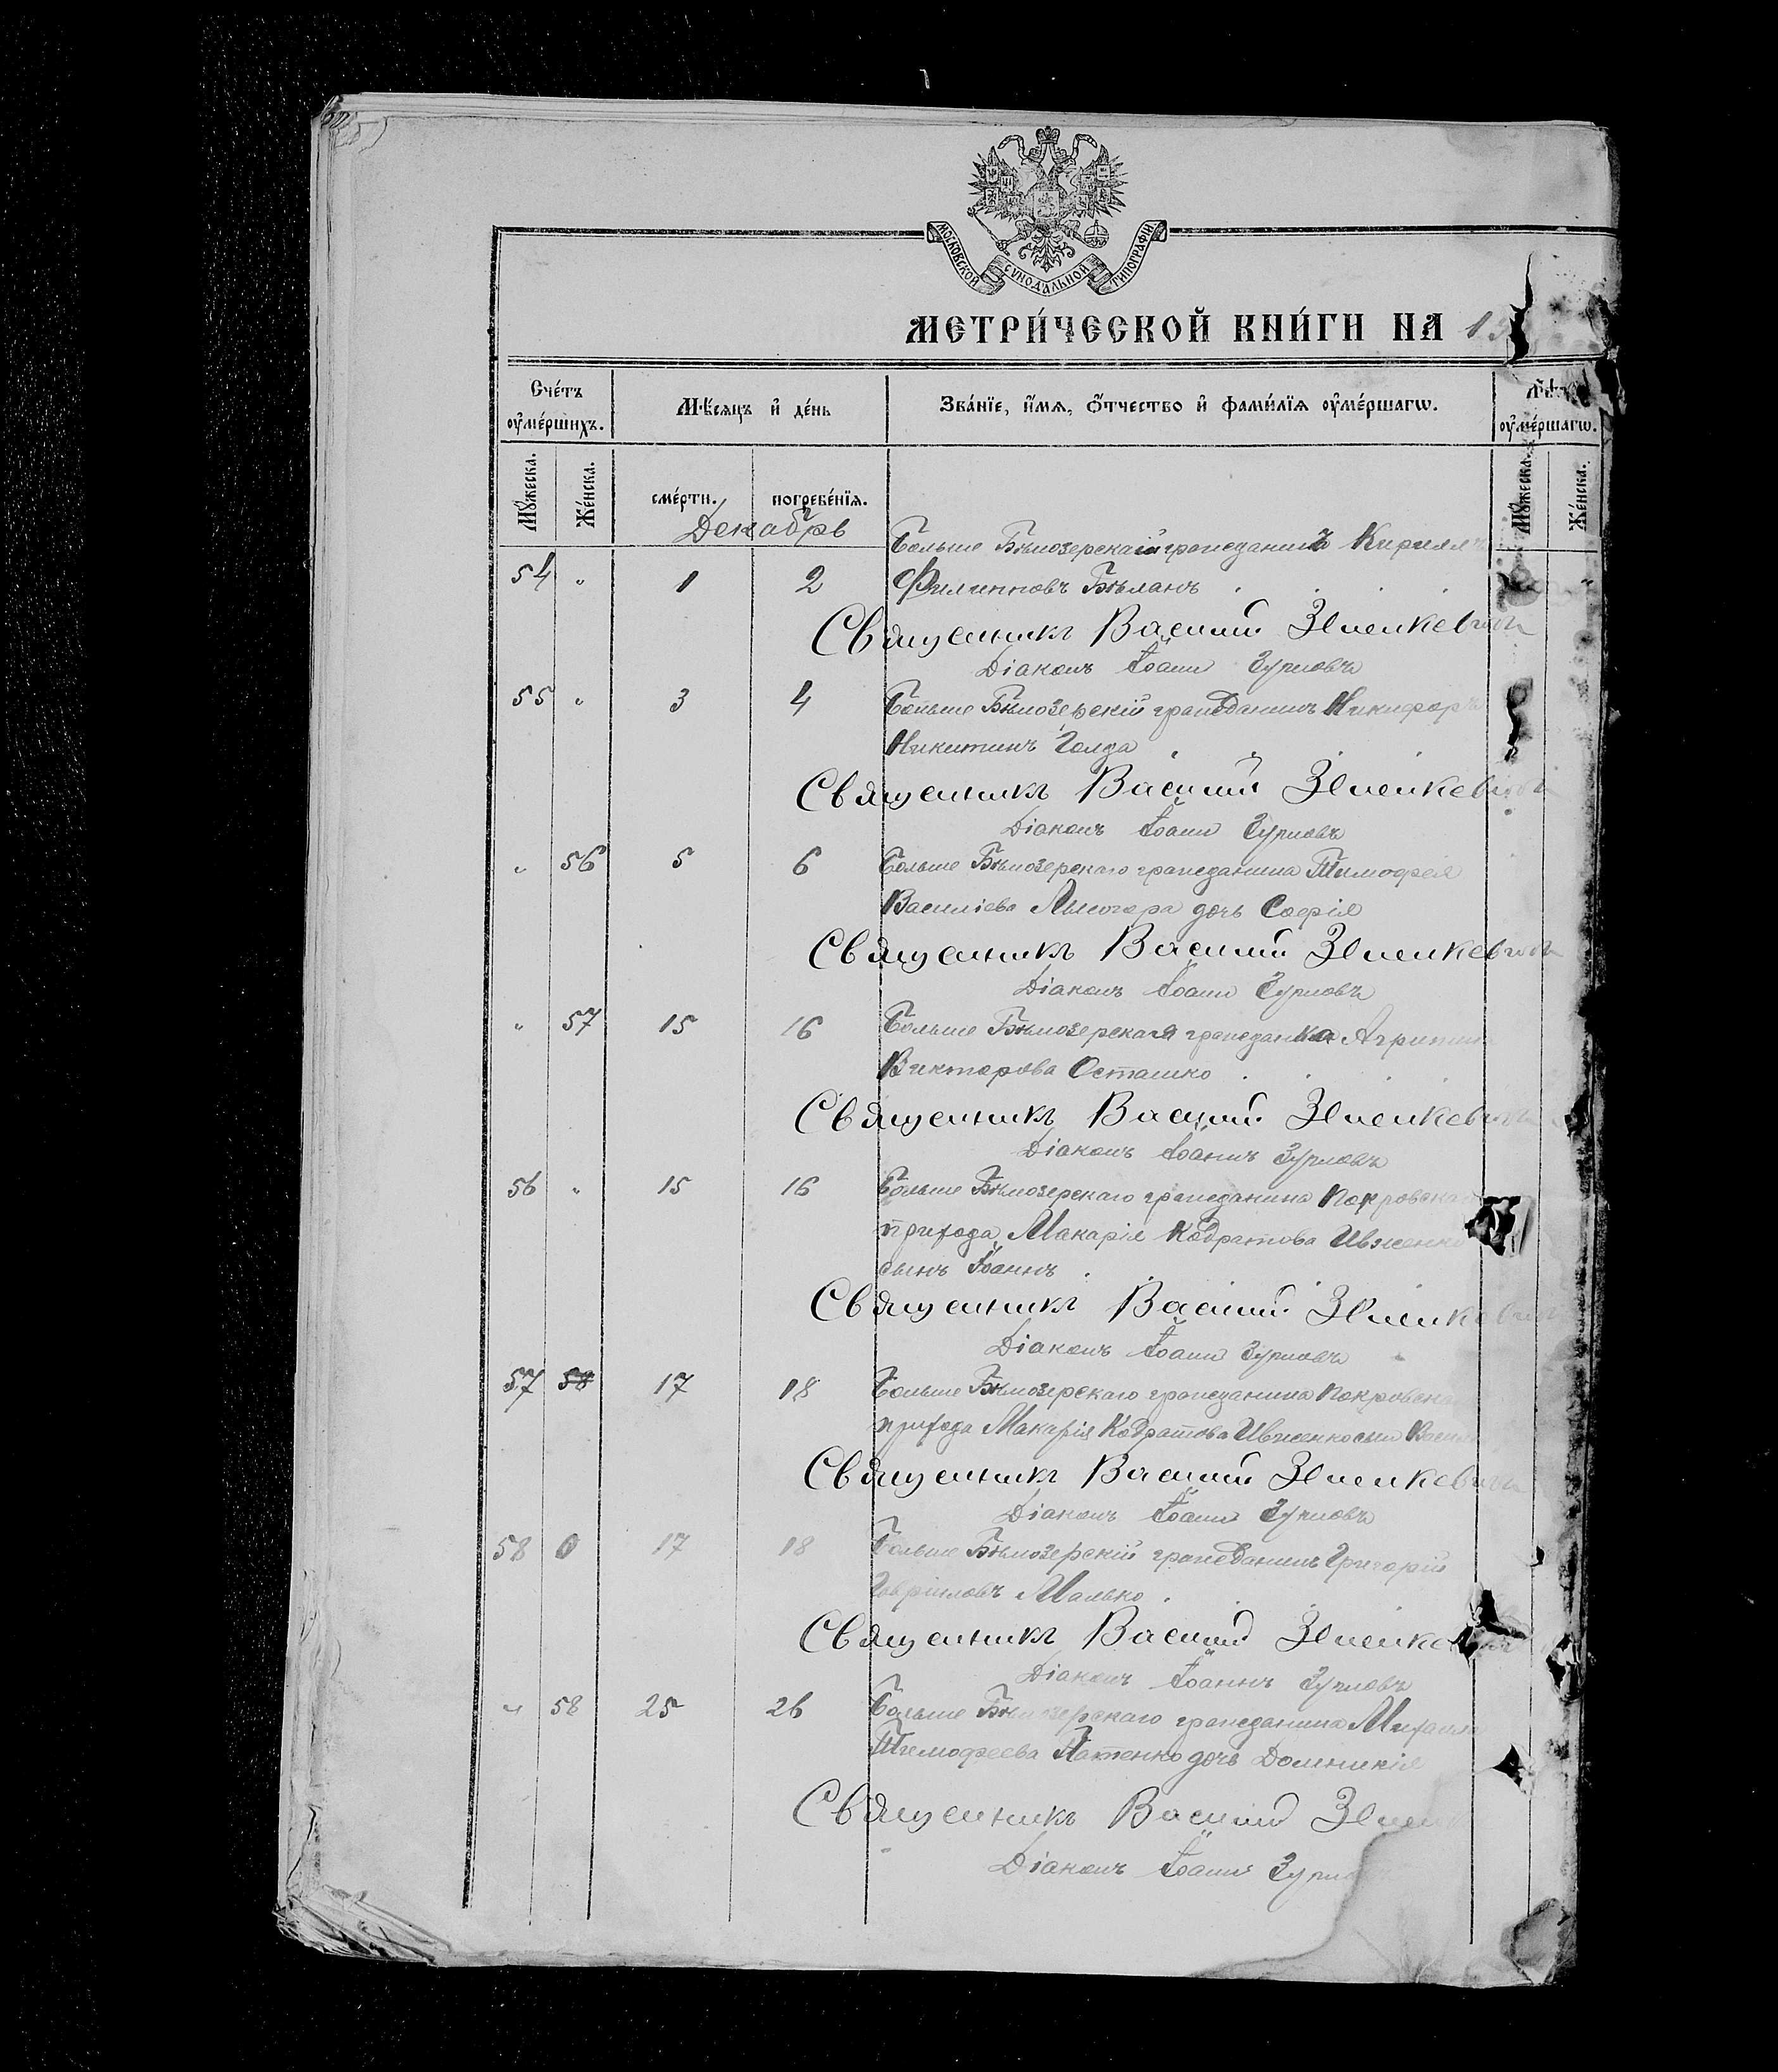 МОСКОВСКОЙ СѴНОДАЛЬНОЙ ТИПОГРАФІИ
МЕТРИ́ЧЕСКОЙ КНИ́ГИ НА 1
Счéтъ ᲂу҆мéршихъ.
Мѣ́сяцъ и҆ дéнь
Звáнїе, и҆́мѧ, ѻ҆́тчество и҆ фами́лїѧ ᲂу҆мéршагѡ.
ᲂу҆мéршагѡ.
Мꙋ́жеска.
Жéнска.
смéрти.
погребéнїѧ.
Мꙋ́жеска.
Жéнска.
Декабрь
Больше Бѣлозерскій гражданинъ Кириллъ
54 " 1 2 Филипповъ Бѣланъ
Священникъ Василій
Діаконъ Іоаннъ Зурновъ
55 " 3 4 Больше Бѣлозерскій гражданинъ Никифоръ
Никитинъ Голда
Священникъ Василій
Діаконъ Іоаннъ Зурновъ
" 56 5 6 Больше Бѣлозерскаго гражданина Тимофея
Василіева Лысогора дочь Софія
Священникъ Василій
Діаконъ Іоаннъ Зурновъ
" 57 15 16 Больше Бѣлозерская гражданка
Викторова Осташко
Священникъ Василій
Діаконъ Іоаннъ Зурновъ
56 " 15 16 Больше Бѣлозерскаго гражданина
прихода Макарія Кодратова Ивженко
сынъ Іоаннъ
Священникъ Василій
Діаконъ Іоаннъ Зурновъ
57 58 17 18 Больше Бѣлозерскаго гражданина
прихода Макарія Кодратова Ивженко сынъ
Священникъ Василій
Діаконъ Іоаннъ Зурновъ
58 0 17 18 Больше Бѣлозерскій гражданинъ Григорій
Гавріиловъ Малько
Священникъ Василій
Діаконъ Іоаннъ Зурновъ
" 58 25 26 Больше Бѣлозерскаго гражданина Михаила
Тимофеева Патенко дочь Домникія
Священникъ Василій
Діаконъ Іоаннъ